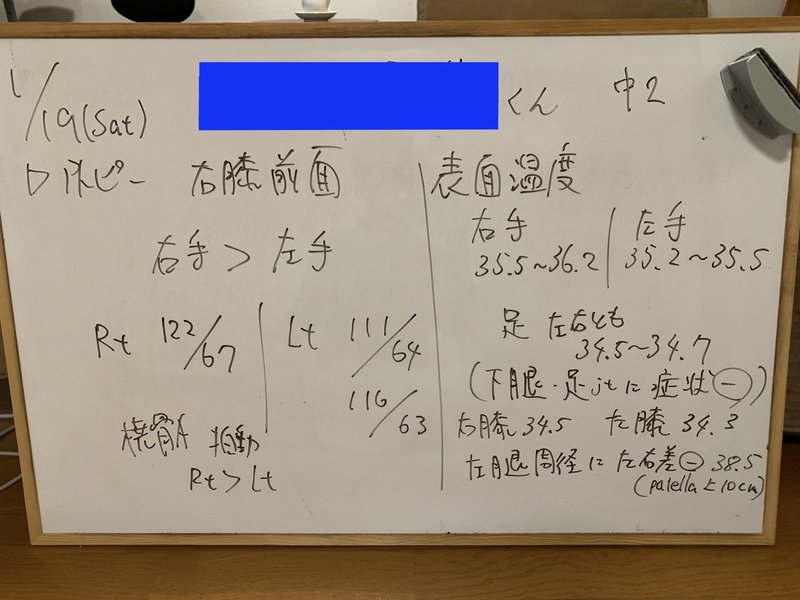 1/19(Sat)
くん 中2
右膝前面
右手 > 左手
Rt 122/67
Lt 111/64
116/63
橈骨A 拍動
Rt > Lt
表面温度
右手
35.5~36.2
左手
35.2~35.5
足 左右とも
34.5~34.7
(下腿・足共に症状㊀)
右膝 34.5 左膝 34.3
周径に左右差㊀ 38.5
(patella 上10cm)